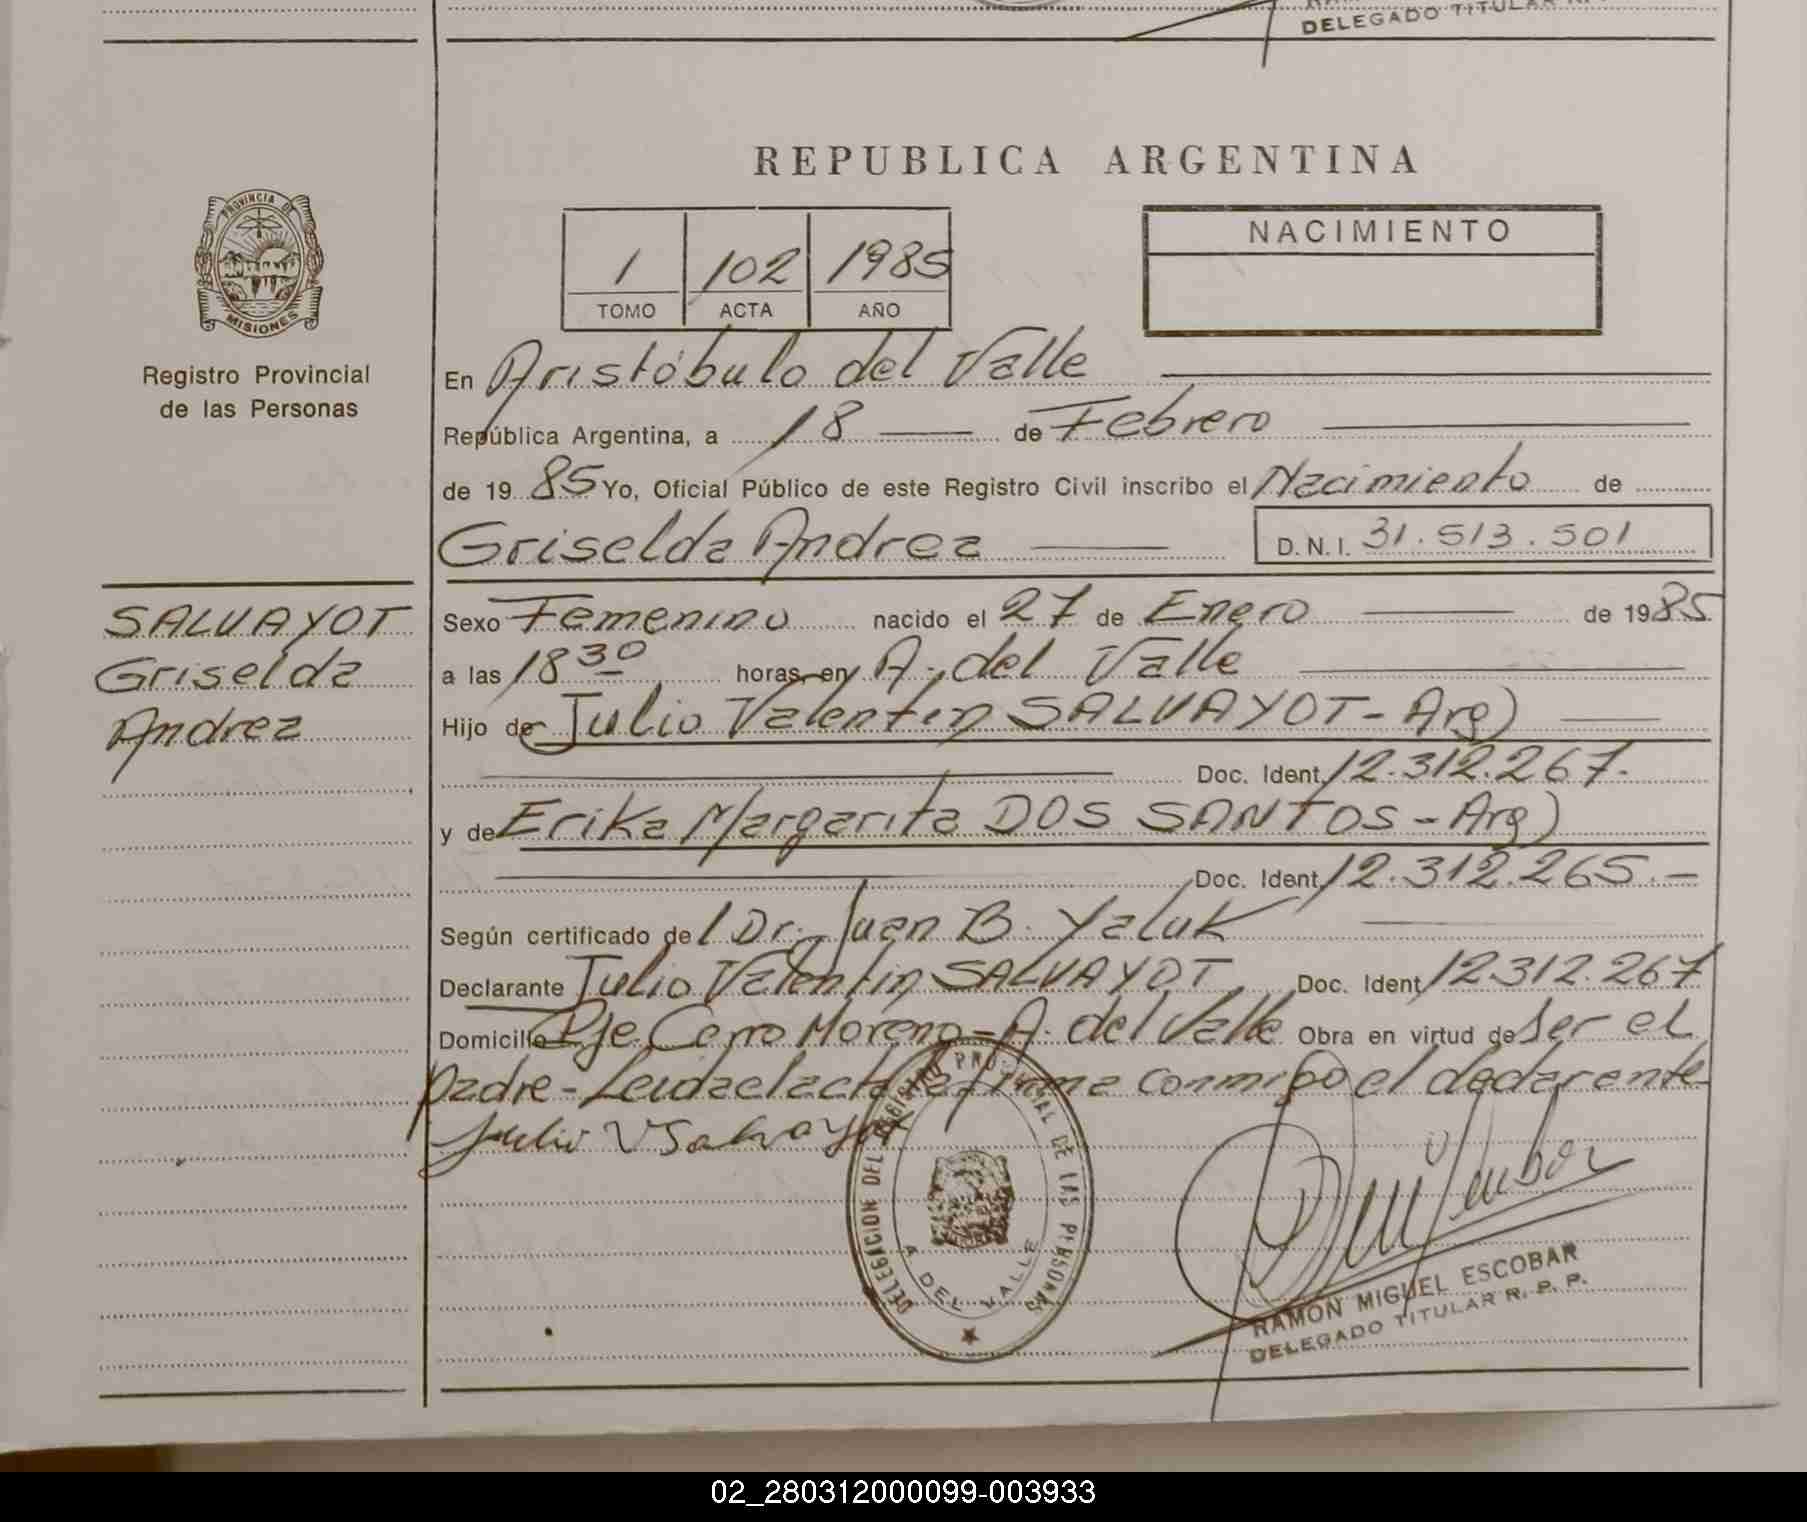 DELEGADO TITULAR R.
REPUBLICA ARGENTINA
PROVINCIA DE
MISIONES
Registro Provincial
de las Personas
1 102 1985
TOMO ACTA AÑO
NACIMIENTO
En Aristóbulo del Valle
República Argentina, a 18 de Febrero
de 1985 Yo, Oficial Público de este Registro Civil inscribo el Nacimiento de
Griselda Andrea D.N.I. 31.513.501
SALVAYOT
Griselda
Andrea
Sexo Femenino nacido el 27 de Enero de 1985
a las 18 30 horas, en A. del Valle
Hijo de Julio Valentin SALVAYOT - Arg)
Doc. Ident. 12.312.267.
y de Erika Margarita DOS SANTOS - Arg)
Doc. Ident. 12.312.265.-
Según certificado del Dr. Juan B. Yaluk
Declarante Julio Valentin SALVAYOT Doc. Ident. 12.312.267
Domicilio Pje. Cerro Moreno - A. del Valle Obra en virtud de ser el
padre - Leida el acta la firma conmigo el declarante
Julio V Salvayot
DELEGACION DEL REGISTRO PROVINCIAL DE LAS PERSONAS
A DEL VALLE
RAMON MIGUEL ESCOBAR
DELEGADO TITULAR R. P. P.
02_280312000099-003933